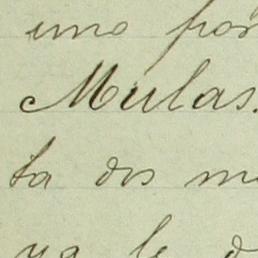 uno por
Mulas.
ta dos m
ya le d